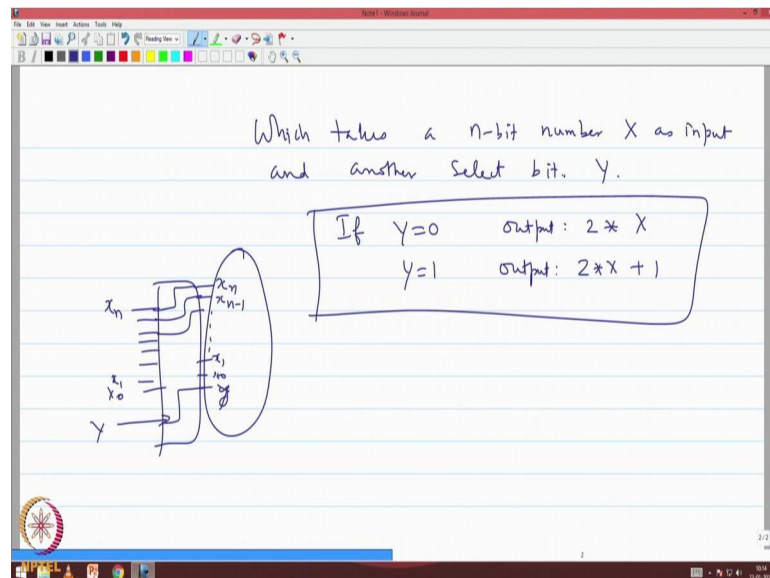 Note1 - Windows Journal
File Edit View Insert Actions Tools Help
Reading View
B I
Which takes a n-bit number X as input
and another Select bit. Y.
If Y=0 output: 2 * X
Y=1 output: 2*X + 1
xn
x1
x0
Y
xn
xn-1
x1
x0
y
2/2
2
NPTEL
10:14